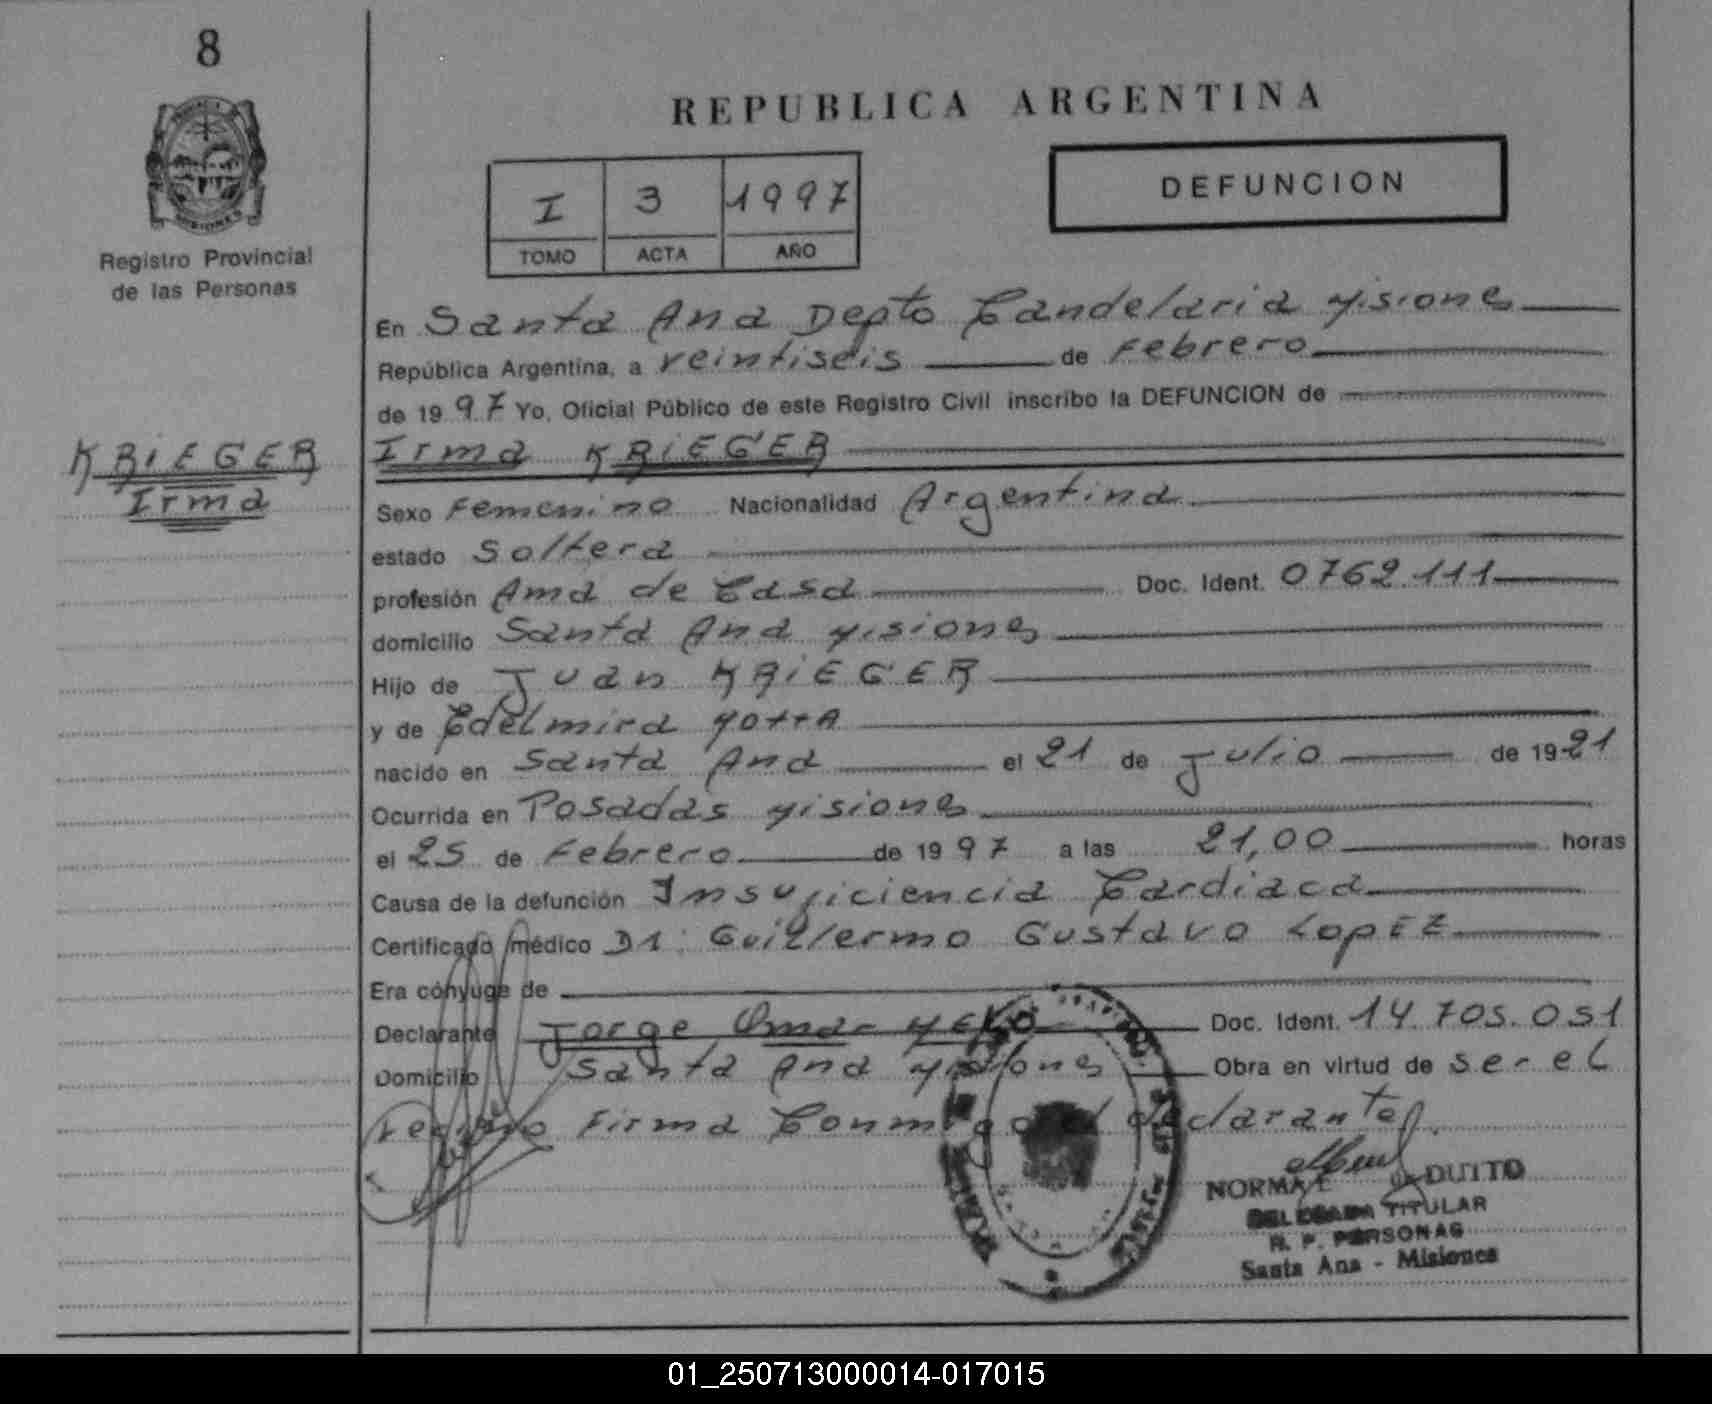 8
REPUBLICA ARGENTINA
I 3 1997
TOMO ACTA AÑO
DEFUNCION
Registro Provincial
de las Personas
En Santa Ana Depto Candelaria Misiones
República Argentina, a veintiseis de Febrero
de 1997 Yo, Oficial Público de este Registro Civil inscribo la DEFUNCION de
KRIEGER
Irma
Irma KRIEGER
Sexo Femenino Nacionalidad Argentina
estado Soltera
profesión Ama de Casa Doc. Ident. 0762.111
domicilio Santa Ana Misiones
Hijo de Juan KRIEGER
y de Edelmira MottA
nacido en Santa Ana el 21 de Julio de 1921
Ocurrida en Posadas Misiones
el 25 de Febrero de 1997 a las 21,00 horas
Causa de la defunción Insuficiencia Cardiaca
Certificado médico Dr. Guillermo Gustavo LopEZ
Era cónyuge de
Declarante Jorge Omar Doc. Ident. 14.705.051
Domicilio Santa Ana Misiones Obra en virtud de ser el
Firma Conmigo el declarante
NORMA
DELEGADA TITULAR
R. P. PERSONAS
Santa Ana - Misiones
01_250713000014-017015